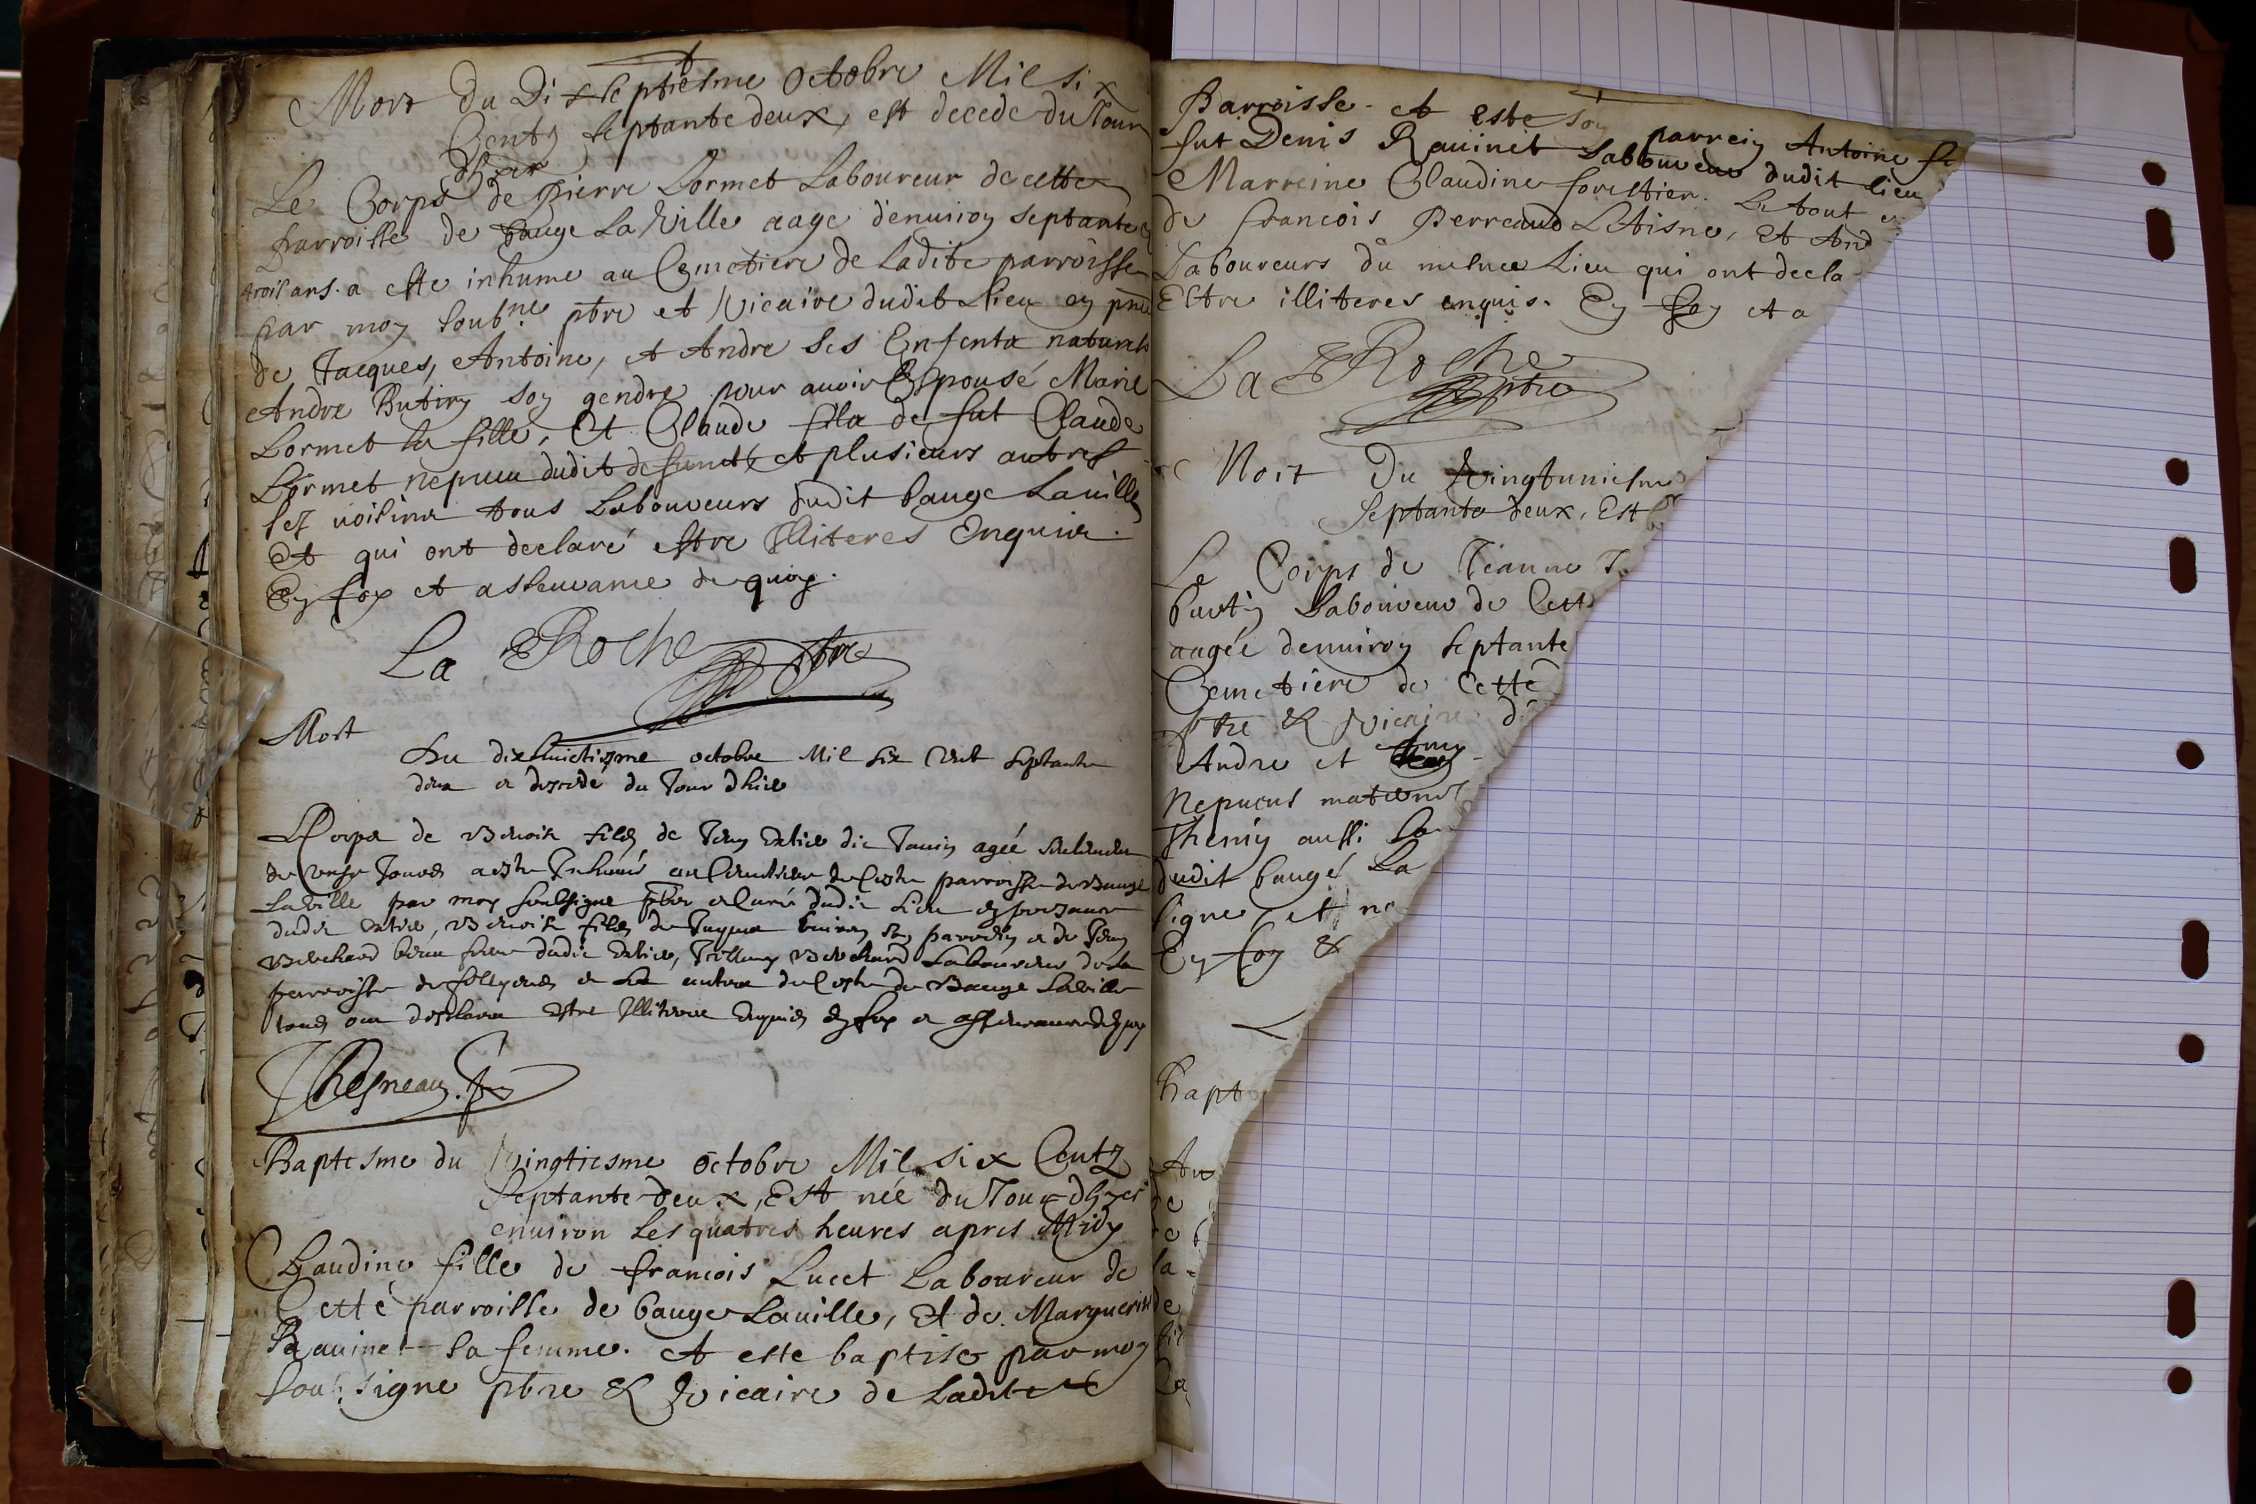 Mort du Dixseptiesme Octobre Mil six
Centz septante deux, est decede du Jour
dhyer
Le Corps de Pierre Lormet Laboureur de cette
parroisse de bauge La Ville aage d'enuiron septante
trois ans. a este inhume au Cemetiere de Ladite parroisse
par moy soubne ptre et Vicaire dudit Lieu en pnce
de Jacques, Antoine, et Andre ses Enfents naturels
Andre Butin son gendre pour auoir Espousé Marie
Lormet sa fille, Et Claude fils de fut Claude
Lormet nepueu dudit defunct, et plusieurs autres
ses uoisins tous Laboureurs dudit bauge Lauille
Et qui ont declaré estre Illiteres Enquis.
En foy et asseurance de quoy.
La Roche ptre
Mort
Du dixhuictiesme octobre Mil six Cent septante
deux a decedé du Jour dhier
Le Corps de Benoist filz de Jean dit agée seulement
de Jours a este Inhumé au Cimetiere de Ceste parroisse de Bauge
Laville par moy soubsigne ptre et Curé dudit Lieu en presance
dudit, Benoist filz de son parrein et de Jean
beau frere dudit, Laboureur de la
parroisse de et les autres de Ceste de Bauge Laville
tous ont desclare Estre Illiteres Enquis en foy et asseurance de quoy
Chesneau
Baptesme du Vingtiesme octobre Mil six Centz
Septante deux, Est née du Jour dhyer
enuiron Les quatres heures apres Midy
Claudine fille de francois Lucet Laboureur de
Cette parroisse de bauge Lauille, Et de Marguerite
Rauinet sa femme. Et este baptise par moy
soubsigne ptre & Vicaire de Ladite
Parroisse. et este son parrein Antoine
fut Denis Rauinet Laboureur dudit lieu
Marreine Claudine forestier. Le tout
de francois Perreaud L'Aisne, Et And
Laboureurs du mesme Lieu qui ont decla
Estre illiteres enquis. En foy et a
La Roche ptre
Mort Du Vingtuniesme
Septante deux, Est
Le Corps de Jeanne
butin Laboureur de Cette
aagée denuiron septante
Cemetiere de Cette
ptre & Vicaire d
Andre et
Nepueus maternels
Theniy aussi La
dudit baugé La
signe, et n
En foy &
Bapt
An
de
la
de